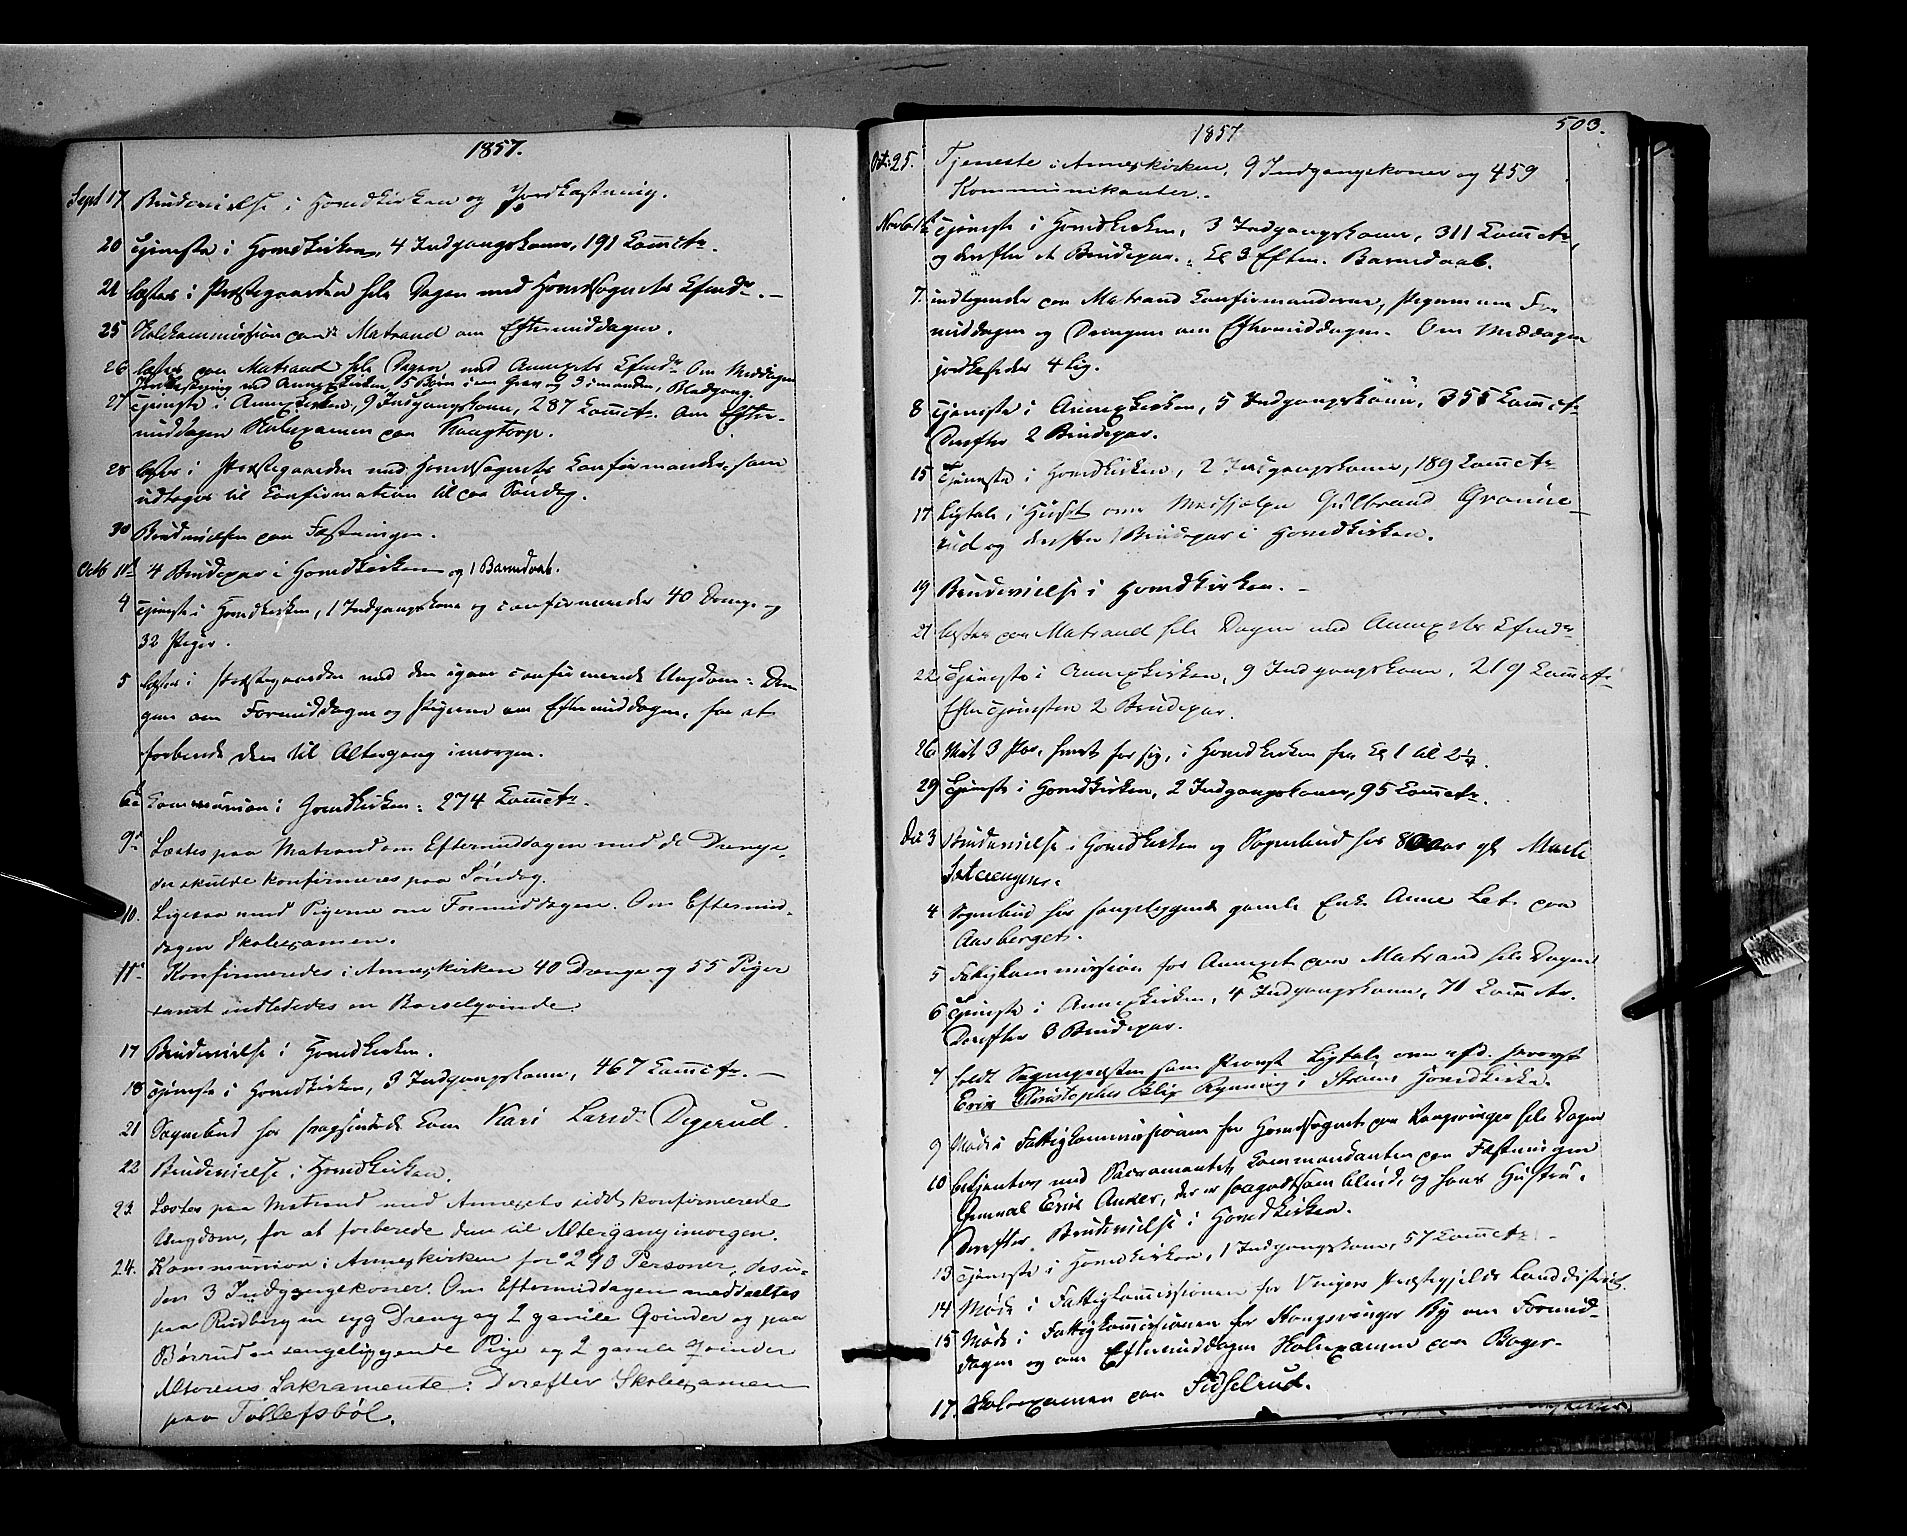 1857.
Sept 17 Brudevielse i Hovedkirken og Jordkastning.
20 Tjeneste i Hovedkirken, 4 Indgangskoner, 191 Commctr.
21 læstes i Præstegaarden hele Dagen med Hovedsognets Cfmdr. –
25 Skolekommission paa Matrand om Eftermiddagen.
26 læstes paa Matrand hele Dagen med Annexets Cfmdr Om Middagen
Jordkastning ved Annexkirken, 5 Børn i een Grav og 3 i manden, Blodgang.
27 Tjeneste i Annexkirken, 9 Indgangskoner, 287 Commctr. Om Efter-
middagen Skolexamen paa Kongtorp.
28 læstes i Præstegaarden med Hovedsognets Confirmander, som
udtoges til Confirmation til paa Søndag.
30 Brudevielse paa Fæstningen.
Octb 1st 4 Brudepar i Hovedkirken og 1 Barnedaab.
4 Tjeneste i Hovedkirken, 1 Indgangskone og confirmeredes 40 Drenge og
32 Piger.
5 læstes i Præstegaarden med den igaar confirmerede Ungdom: Dren
gene om Formiddagen og Pigerne om Eftermiddagen, for at
forberede dem til Altergang imorgen.
6te Communion i Hovedkirken: 274 Commctr.
9de Læstes paa Matrand om Eftermiddagen med de Drenge,
der skulde konfirmeres paa Søndag.
10. Ligesaa med Pigerne om Formiddagen. Om Eftermid-
dagen Skolexamen.
11te Konfirmeredes i Annexkirken 40 Drenge og 55 Piger
samt indlededes en Barselqvinde
17 Brudevielse i Hovedkirken.
18 Tjeneste i Hovedkirken, 3 Indgangskoner, 467 Commctr. –
21 Sognebud hos Kone Kari Larsd. Digerud.
22 Brudevielse i Hovedkirken.
23. Læstes paa Matrand med Annexets sidst konfirmerede
Ungdom, for at forberede dem til Altergang imorgen.
24. Kommunion i Annexkirken for 290 Personer, desu-
den 3 Indgangskoner. Om Eftermiddagen meddeeltes
paa Rudberg en syg Dreng og 2 gamle Qvinder og paa
Børrud en sengeliggende Pige og 2 gamle Qvinder
Altarens Sakramente. Derefter Skolexamen
paa Tollefsbøl.
1857
503.
Oct. 25. Tjeneste i Annexkirken, 9 Indgangskoner og 459
Kommunikanter.
Novb 1st Tjeneste i Hovedkirken, 3 Indgangskoner, 311 Commctr,
og derefter et Brudepar. Cl 3 Efterm. Barnedaab.
7. indtegnedes paa Matrand Confirmanderne, Pigerne om For
middagen og Drengene om Eftermiddagen. Om Middagen
jordkastedes 4 Lig.
8 Tjeneste i Annexkirken, 5 Indgangskoner, 355 Commctr
Derefter 2 Brudepar.
15 Tjeneste i Hovedkirken, 2 Indgangskoner, 189 Commctr
17 Ligtale i Huset over Medhjelper Gulbrand Granne-
rud og derefter 1 Brudepar i Hovedkirken.
19 Brudevielse i Hovedkirken. –
21 læstes paa Matrand hele Dagen med Annexets Cfmdr
22 Tjeneste i Annexkirken, 9 Indgangskoner, 219 Commctr
Efter Tjenesten 2 Brudepar.
26 Viet 3 Par, hvert for sig, i Hovedkirken fra Cl 1 til 2¼.
29 Tjeneste i Hovedkirken, 2 Indgangskoner, 95 Commctr.
Dec 3 Brudevielse i Hovedkirken og Sognebud hos 80 Aar gl. Marte
Sæterengen.
4 Sognebud hos sengeliggende gamle Enke Anne Let paa
Aasberget.
5 Fattigkommission for Annexet paa Matrand hele Dagen
6 Tjeneste i Annexkirken, 4 Indgangskoner, 71 Commctr.
Derefter 3 Brudepar.
7 holdt Sognepræsten som Provst Ligtale over afd. Provst
Erik Christopher Blix Rynning i Strøms Hovedkirke.
9 Møde i Fattigkommissionen for Hovedsognet paa Kongsvinger hele Dagen
10 betjentes med Sacramentet Commandanten paa Fæstningen
General Erik Anker, der er saagodtsom blind, og hans Hustru.
Derefter Brudevielse i Hovedkirken.
13 Tjeneste i Hovedkirken, 1 Indgangskone, 57 Commctr. –
14 Møde i Fattigkommissionen for Vingers Præstegjelds Landdistrict.
15 Møde i Fattigkommissionen for Kongsvinger By om Formid-
dagen og om Eftermiddagen Skolexamen paa Roger-
17. Skolexamen paa Sidselrud.